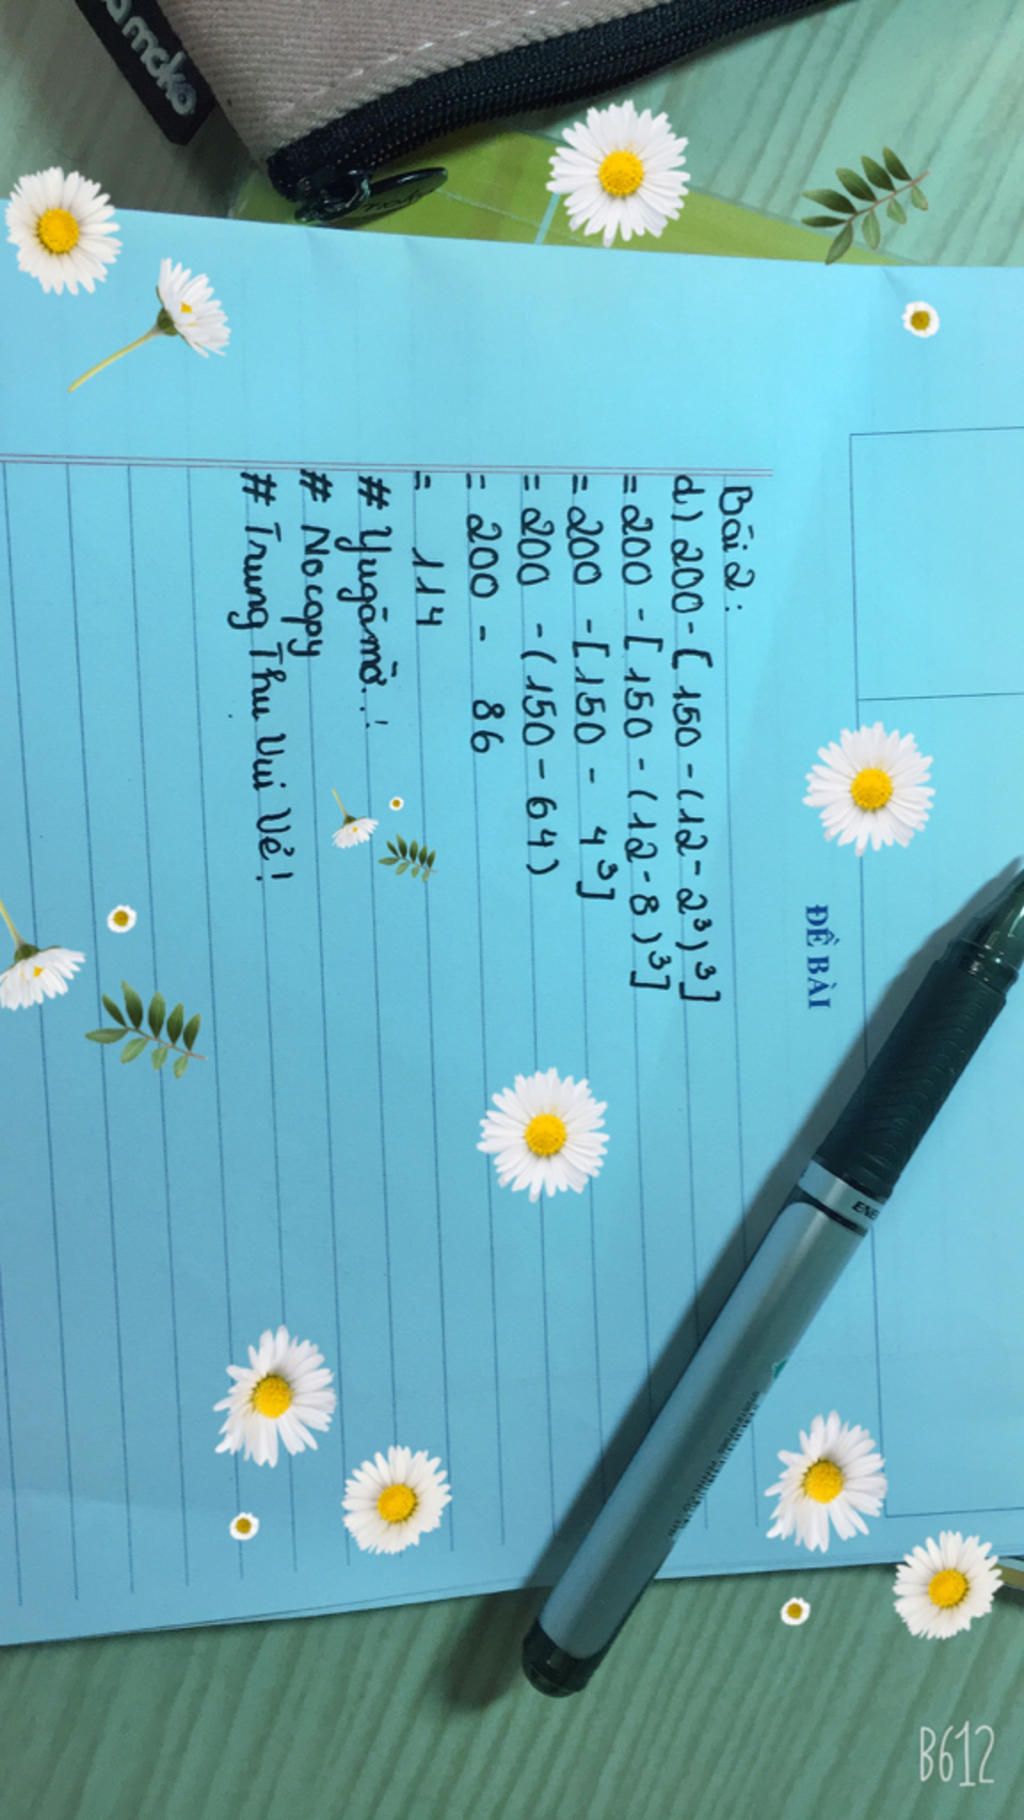 amcko
ĐỀ BÀI
Bài 2:
d) 200 - [150 - (12 - 2³)³]
= 200 - [150 - (12 - 8)³]
= 200 - [150 - 4³]
= 200 - (150 - 64)
= 200 - 86
= 114
# Yugāmờ!
# No copy
# Trung Thu Vui Vẻ!
B612